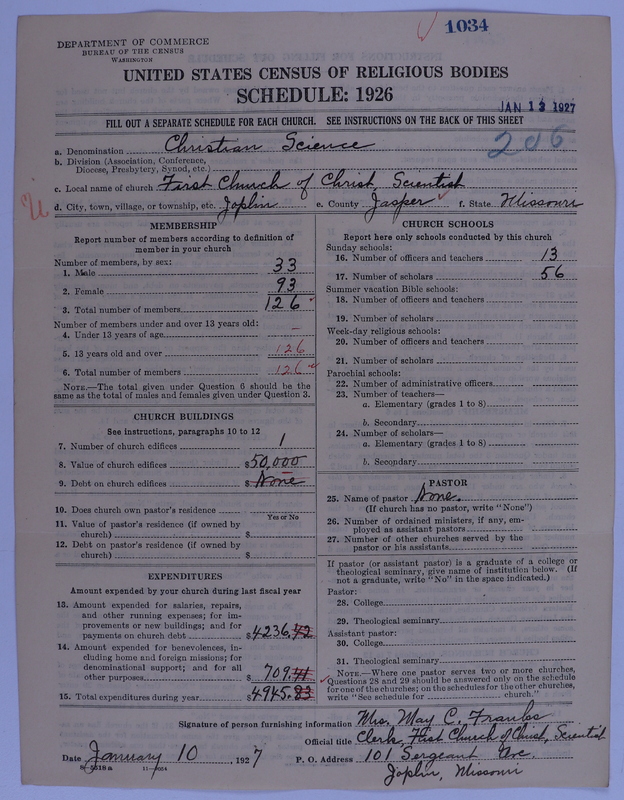 1034
DEPARTMENT OF COMMERCE
BUREAU OF THE CENSUS
WASHINGTON
UNITED STATES CENSUS OF RELIGIOUS BODIES
SCHEDULE: 1926
JAN 13 1927
FILL OUT A SEPARATE SCHEDULE FOR EACH CHURCH. SEE INSTRUCTIONS ON THE BACK OF THIS SHEET
206
a. Denomination Christian Science
b. Division (Association, Conference, Diocese, Presbytery, Synod, etc.)
c. Local name of church First Church of Christ, Scientist
d. City, town, village, or township, etc. Joplin e. County Jasper f. State Missouri
MEMBERSHIP
Report number of members according to definition of member in your church
Number of members, by sex:
1. Male 33
2. Female 93
3. Total number of members 126
Number of members under and over 13 years old:
4. Under 13 years of age –
5. 13 years old and over 126
6. Total number of members 126
NOTE.—The total given under Question 6 should be the same as the total of males and females given under Question 3.
CHURCH BUILDINGS
See instructions, paragraphs 10 to 12
7. Number of church edifices 1
8. Value of church edifices $50,000
9. Debt on church edifices $ None
10. Does church own pastor's residence
Yes or No
11. Value of pastor's residence (if owned by church) $
12. Debt on pastor's residence (if owned by church) $
EXPENDITURES
Amount expended by your church during last fiscal year
13. Amount expended for salaries, repairs, and other running expenses; for improvements or new buildings; and for payments on church debt $4236.42
14. Amount expended for benevolences, including home and foreign missions; for denominational support; and for all other purposes $709.41
15. Total expenditures during year $4945.83
CHURCH SCHOOLS
Report here only schools conducted by this church
Sunday schools:
16. Number of officers and teachers 13
17. Number of scholars 56
Summer vacation Bible schools:
18. Number of officers and teachers
19. Number of scholars
Week-day religious schools:
20. Number of officers and teachers
21. Number of scholars
Parochial schools:
22. Number of administrative officers
23. Number of teachers—
a. Elementary (grades 1 to 8)
b. Secondary
24. Number of scholars—
a. Elementary (grades 1 to 8)
b. Secondary
PASTOR
25. Name of pastor None.
(If church has no pastor, write "None")
26. Number of ordained ministers, if any, employed as assistant pastors
27. Number of other churches served by the pastor or his assistants
If pastor (or assistant pastor) is a graduate of a college or theological seminary, give name of institution below. (If not a graduate, write "No" in the space indicated.)
Pastor:
28. College
29. Theological seminary
Assistant pastor:
30. College
31. Theological seminary
NOTE.—Where one pastor serves two or more churches, Questions 28 and 29 should be answered only on the schedule for one of the churches; on the schedules for the other churches, write "See schedule for church."
Signature of person furnishing information Mrs. May C.
Official title Clerk, First Church of Christ, Scientist
Date January 10, 1927 P. O. Address 101 Sergeant Ave.
Joplin, Missouri